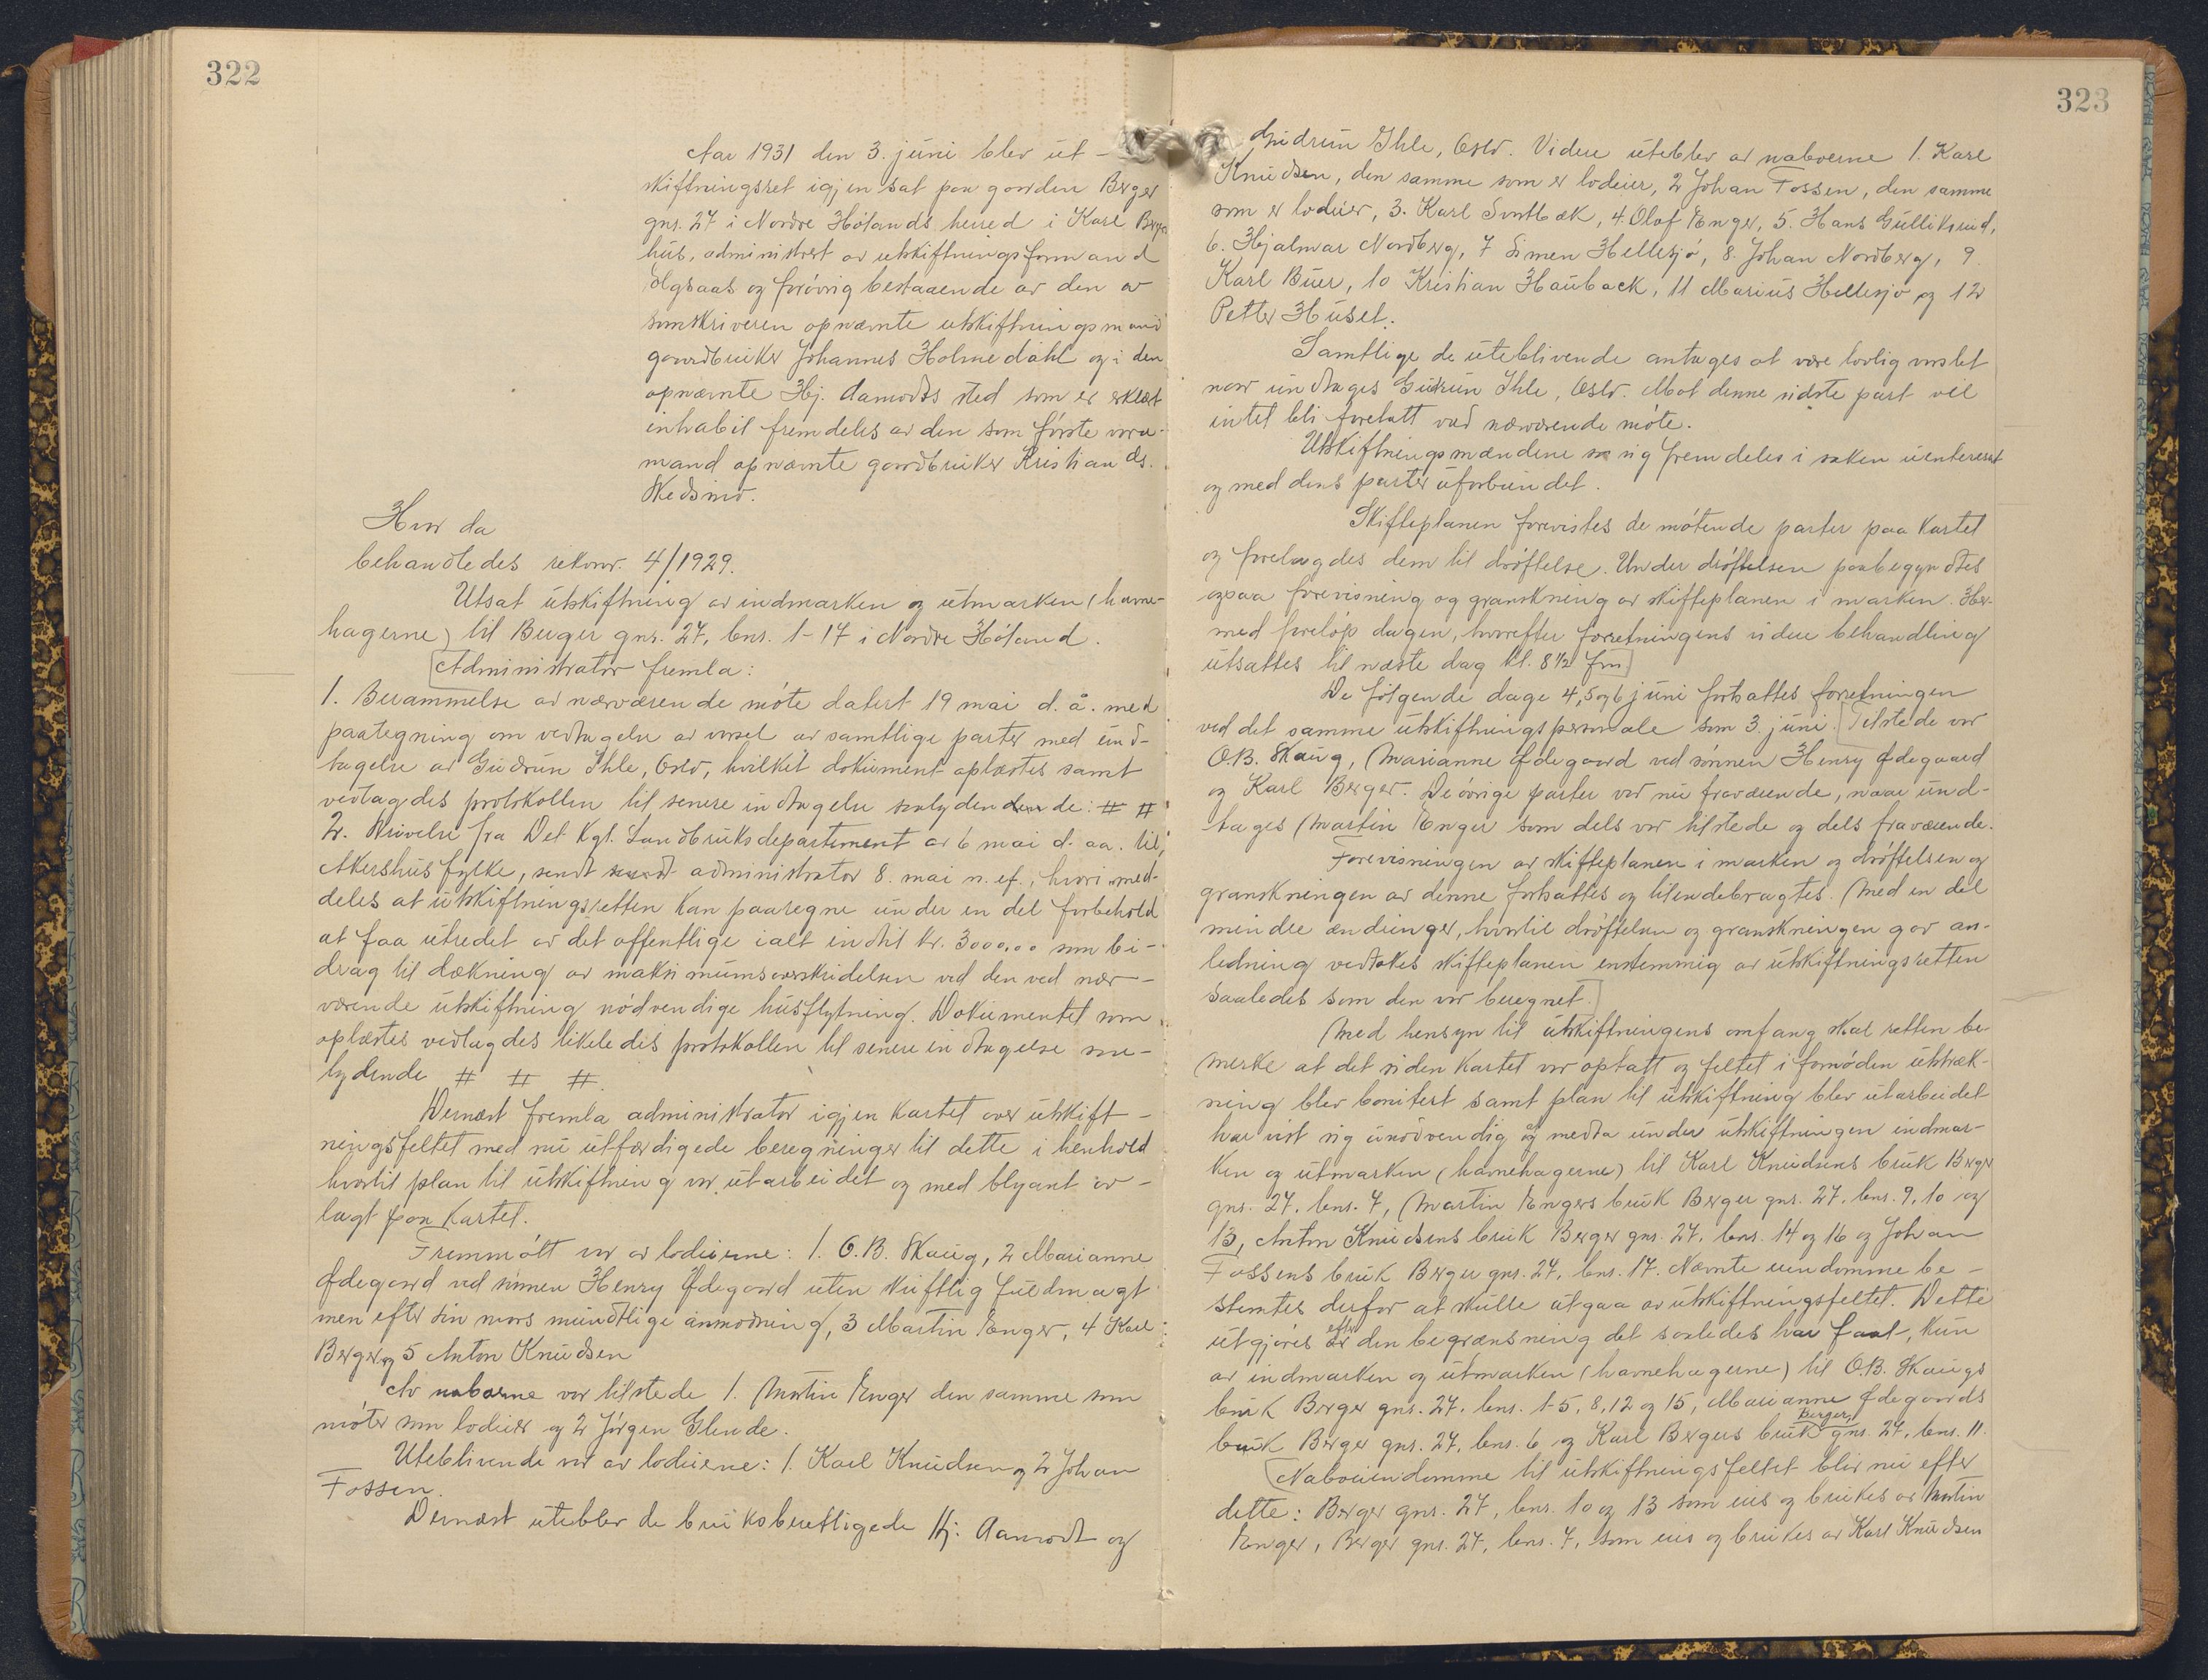 322
Aar 1931 den 3. juni blev ut-
skiftningsret igjen sat paa gaarden Berger
gnr. 27 i Nordre Hölands herred i Karl Bergers
hus, administrert av utskiftningsformand
Olgsaas og forövrig bestaaende av den av
sorenskriveren opnævnte utskiftningsmand
gaardbruker Johannes Holmedahl og i den
opnævnte Hj. Aamodts sted som er erklært
inhabil fremdeles av den som förste vara-
mand opnævnte gaardbruker Kristian As.
Skedsmo.
Hvor da
behandledes sak nr. 4/1929.
Utsat utskiftning av indmarken og utmarken (havne-
hagerne) til Berger gnr. 27, bnr. 1-17 i Nordre Höland.
Administrator fremla:
1. Berammelse av nærværende möte datert 19 mai d. å. med
paategning om vedtagelse av varsel av samtlige parter med und-
tagelse av Gudrun Ihle, Oslo, hvilket dokument oplæstes samt
vedlagdes protokollen til senere indtagelse saalydende: # #
2. Skrivelse fra Det Kgl. Landbruksdepartement av 6 mai d. aa. til
Akershus fylke, sendt administrator 8. mai n. ef., hvori med-
deles at utskiftningsretten kan paaregne under en del forbehold
at faa utredet av det offentlige ialt indtil kr. 3000,00 som bi-
drag til dækning av maksimumsoverskridelsen ved den ved nær-
værende utskiftning nödvendige husflytning. Dokumentet som
oplæstes vedlagdes likeledes protokollen til senere indtagelse saa-
lydende # # #.
Dernæst fremla administrator igjen kartet over utskift-
ningsfeltet med nu utfærdigede beregninger til dette i henhold
hvortil plan til utskiftning var utarbeidet og med blyant av-
lagt paa kartet.
Fremmött var av lodeierne: 1. O.B. Skaug, 2 Marianne
Ødegaard ved sönnen Henry Ødegaard uten skriftlig fuldmagt
men efter sin mors mundtlige anmodning, 3 Martin Enger, 4 Karl
Berger og 5 Anton Knudsen
Av naboerne var tilstede 1. Martin Enger den samme som
möter som lodeier og 2 Jörgen Glende.
Uteblivende var av lodeierne: 1. Karl Knudsen og 2 Johan
Fossen.
Dernæst uteblev de bruksberettigede Hj. Aamodt og
323
Gudrun Ihle, Oslo. Videre uteblev av naboerne 1. Karl
Knudsen, den samme som er lodeier, 2 Johan Fossen, den samme
som er lodeier, 3. Karl Svartbæk, 4. Olaf Enger, 5. Hans Gulliksrud,
6. Hjalmar Nordberg, 7 Simen Hellesjö, 8. Johan Nordberg, 9
Karl Buer, 10 Kristian Hauback, 11 Marius Hellesjö og 12
Petter Huset.
Samtlige de uteblivende antages at være lovlig varslet
naar undtages Gudrun Ihle, Oslo. Mot denne sidste part vil
intet bli foretatt ved nærværende möte.
Utskiftningsmændene sa sig fremdeles i saken uinteressert
og med dens parter uforbundet.
Skifteplanen forevistes de mötende parter paa kartet
og forelagdes dem til dröftelse. Under dröftelsen paabegyndtes
ogsaa forevisning og granskning av skifteplanen i marken. Her-
med forelöp dagen, hvorefter forretningens videre behandling
utsattes til næste dag kl. 8 1/2 fm
De fölgende dage 4, 5 og 6 juni fortsattes forretningen
ved det samme utskiftningspersonale som 3. juni. Tilstede var
O.B. Skaug, Marianne Ødegaard ved sönnen Henry Ødegaard
og Karl Berger. De övrige parter var nu fraværende, naar und-
tages Martin Enger som dels var tilstede og dels fraværende.
Forevisningen av skifteplanen i marken og dröftelsen og
granskningen av denne fortsattes og tilendebragtes. Med en del
mindre ændringer, hvortil dröftelsen og granskningen gav an-
ledning vedtokes skifteplanen enstemmig av utskiftningsretten
saaledes som den var beregnet.
Med hensyn til utskiftningens omfang skal retten be-
merke at det siden kartet var optatt og feltet i fornöden utstræk-
ning blev bonitert samt plan til utskiftning blev utarbeidet
har vist sig unödvendig å medta under utskiftningen indmar-
ken og utmarken (havnehagerne) til Karl Knudsens bruk Berger
gnr. 27. bnr. 7, Martin Engers bruk Berger gnr. 27. bnr. 9, 10 og
13, Anton Knudsens bruk Berger gnr. 27. bnr. 14 og 16 og Johan
Fossens bruk Berger gnr. 27, bnr. 17. Nævnte eiendomme be-
stemtes derfor at skulle utgaa av utskiftningsfeltet. Dette
utgjöres efter den begrænsning det saaledes har faat, kun
av indmarken og utmarken (havnehagerne) til O.B. Skaugs
bruk Berger gnr. 27. bnr. 1-5, 8, 12 og 15, Marianne Ødegaards
bruk Berger gnr. 27, bnr. 6 og Karl Bergers bruk Berger, gnr. 27, bnr. 11.
Naboeiendomme til utskiftningsfeltet blir nu efter
dette: Berger gnr. 27, bnr. 10 og 13 som eies og brukes av Martin
Enger, Berger gnr. 27, bnr. 7, som eies og brukes av Karl Knudsen